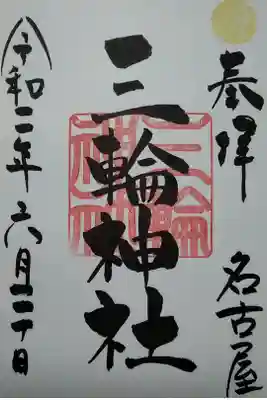 奉拝
名古屋
三輪神社
三輪神社
令和二年六月二十日